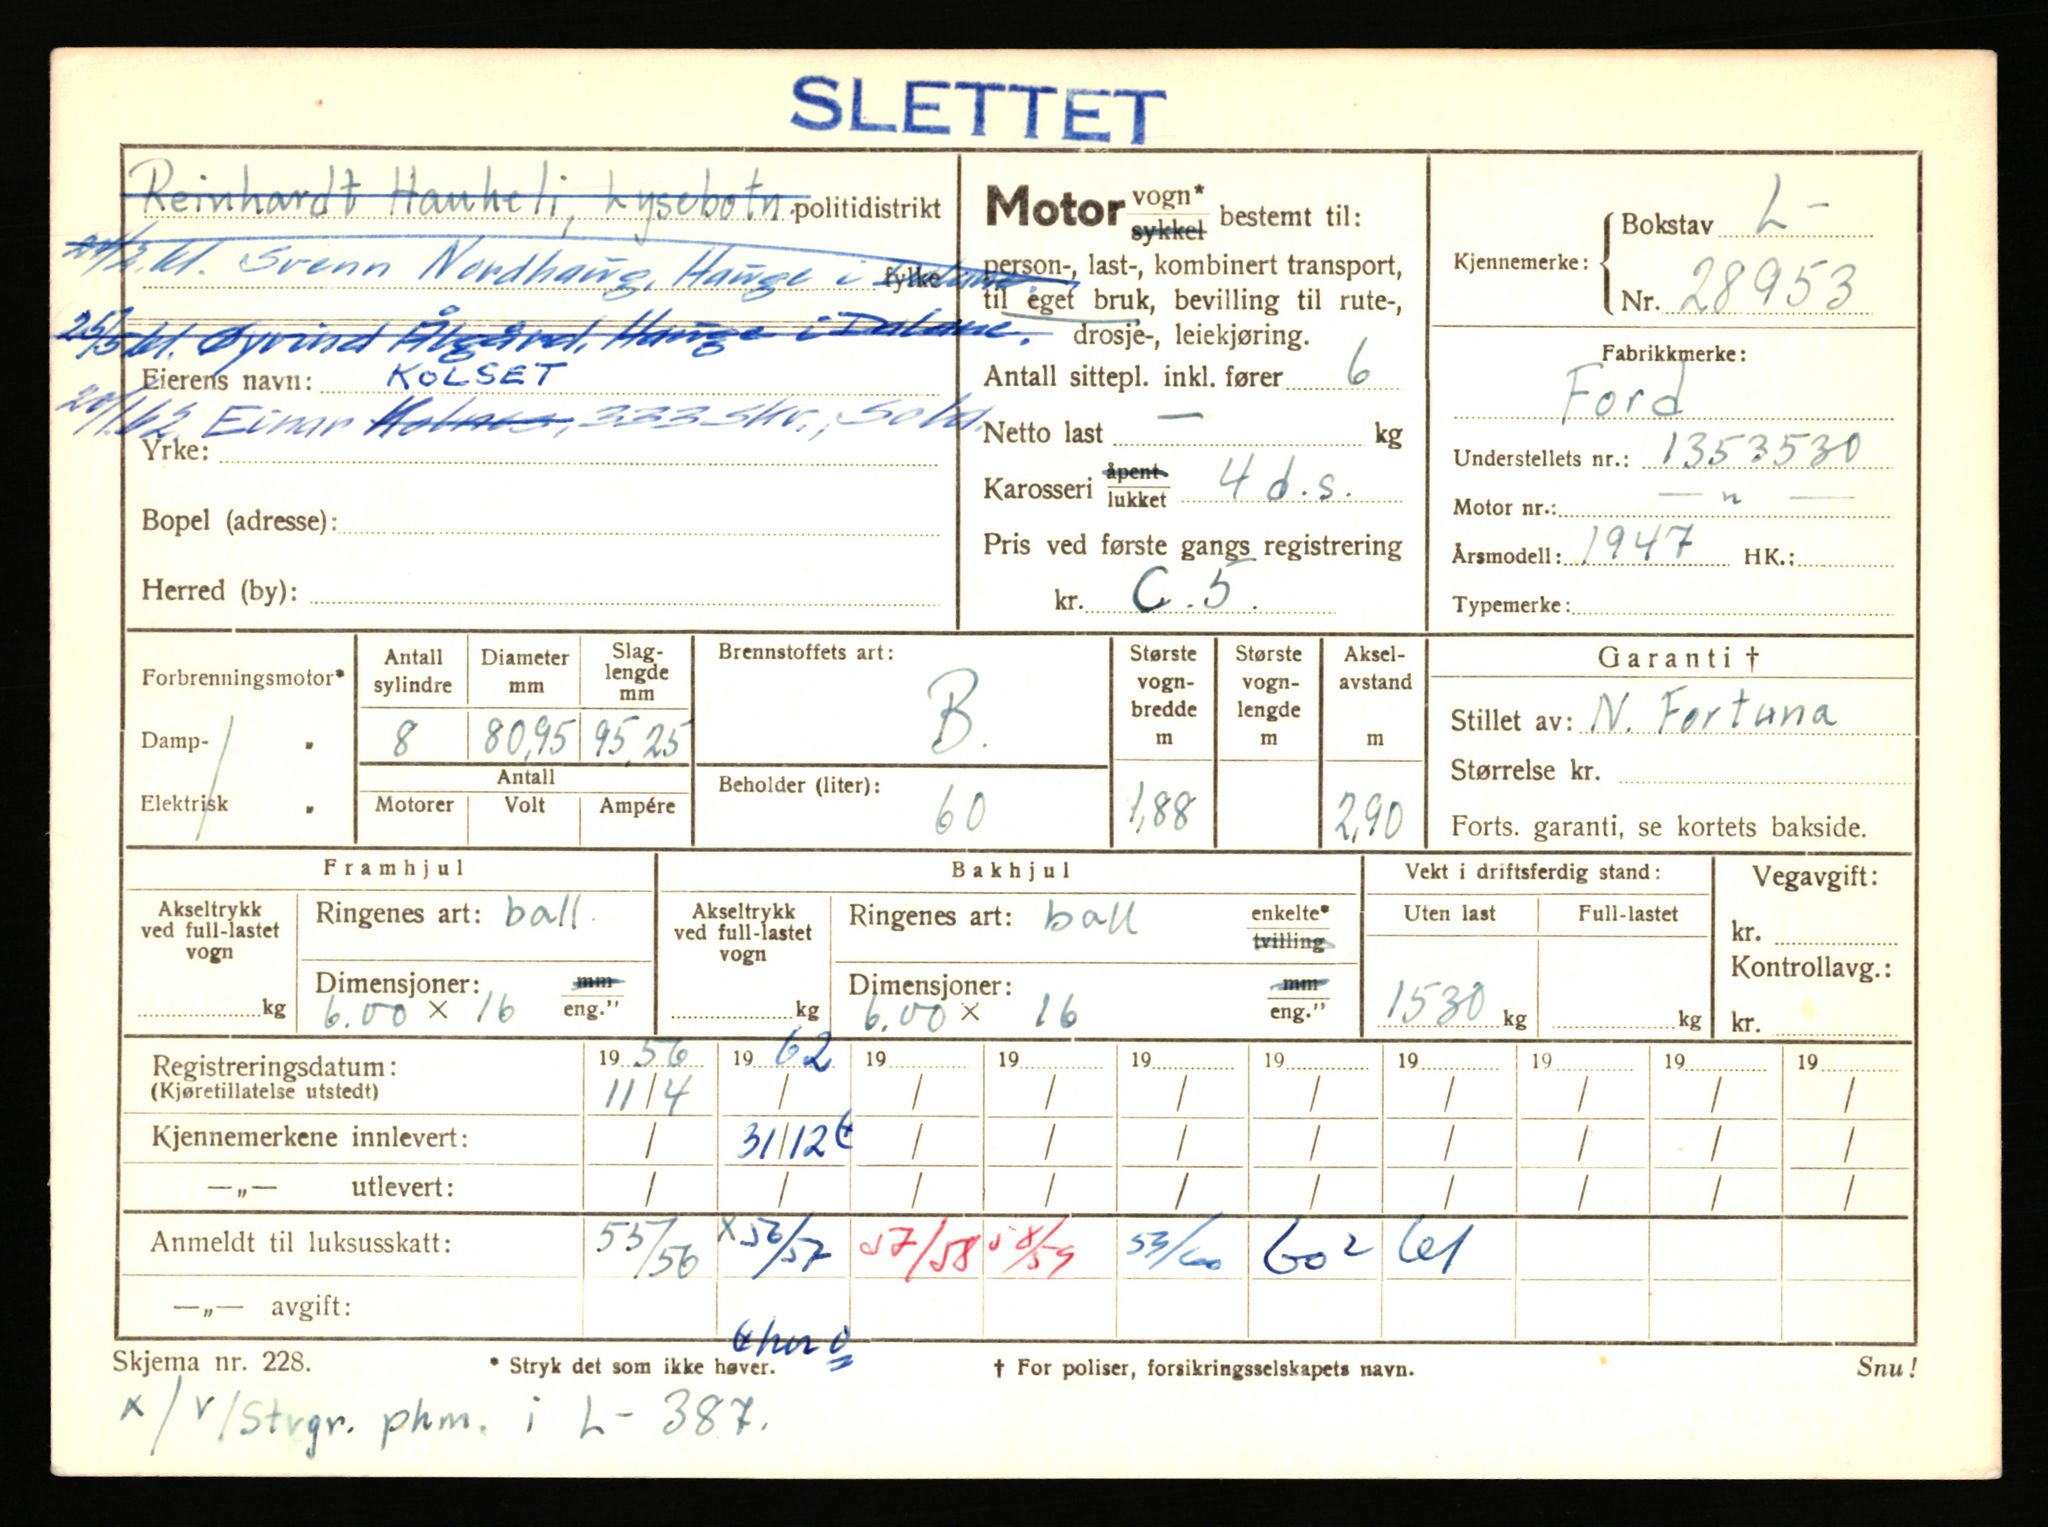 SLETTET
Reinhardt Hauheli, Lysebotn. politidistrikt
kl. Svenn Nordhaug, Hauge i Dalane. fylke
25/5 kl. Øyvind Ålgård, Hauge i Dalane.
Eierens navn: KOLSET
20/1.62 Einar Holmes, 333 skv., Sola.
Yrke:
Bopel (adresse):
Herred (by):
Motor vogn* sykkel bestemt til:
person-, last-, kombinert transport,
til eget bruk, bevilling til rute-,
drosje-, leiekjøring.
Antall sittepl. inkl. fører 6
Netto last — kg
Karosseri åpent lukket 4 d.s.
Pris ved første gangs registrering
kr. C.5.
Kjennemerke: Bokstav L-
Nr. 28953
Fabrikkmerke:
Ford
Understellets nr.: 1353530
Motor nr.: — " —
Årsmodell: 1947 HK.:
Typemerke:
Forbrenningsmotor*
Damp- "
Elektrisk "
Antall sylindre Diameter mm Slag-lengde mm
8 80,95 95,25
Antall
Motorer Volt Ampére
Brennstoffets art:
B.
Beholder (liter):
60
Største vogn-bredde m
1,88
Største vogn-lengde m
Aksel-avstand m
2,90
Garanti †
Stillet av: N. Fortuna
Størrelse kr.
Forts. garanti, se kortets bakside.
Framhjul
Akseltrykk ved full-lastet vogn
kg
Ringenes art: ball.
Dimensjoner: mm
6.00 × 16 eng."
Bakhjul
Akseltrykk ved full-lastet vogn
kg
Ringenes art: ball enkelte* tvilling
Dimensjoner: mm
6.00 × 16 eng."
Vekt i driftsferdig stand:
Uten last Full-lastet
1530 kg kg
Vegavgift:
kr.
Kontrollavg.:
kr.
Registreringsdatum: 19 56 19 62 19 19 19 19 19 19 19 19
(Kjøretillatelse utstedt) 11/4 / / / / / / / / /
Kjennemerkene innlevert: / 31/12 / / / / / / / /
—„— utlevert: / / / / / / / / / /
Anmeldt til luksusskatt: 55/56 x56/57 57/58 58/59 59/60 60² 61
—„— avgift:
Skjema nr. 228. * Stryk det som ikke høver. † For poliser, forsikringsselskapets navn. Snu!
x/ v/Strgr. phm. i L- 387.